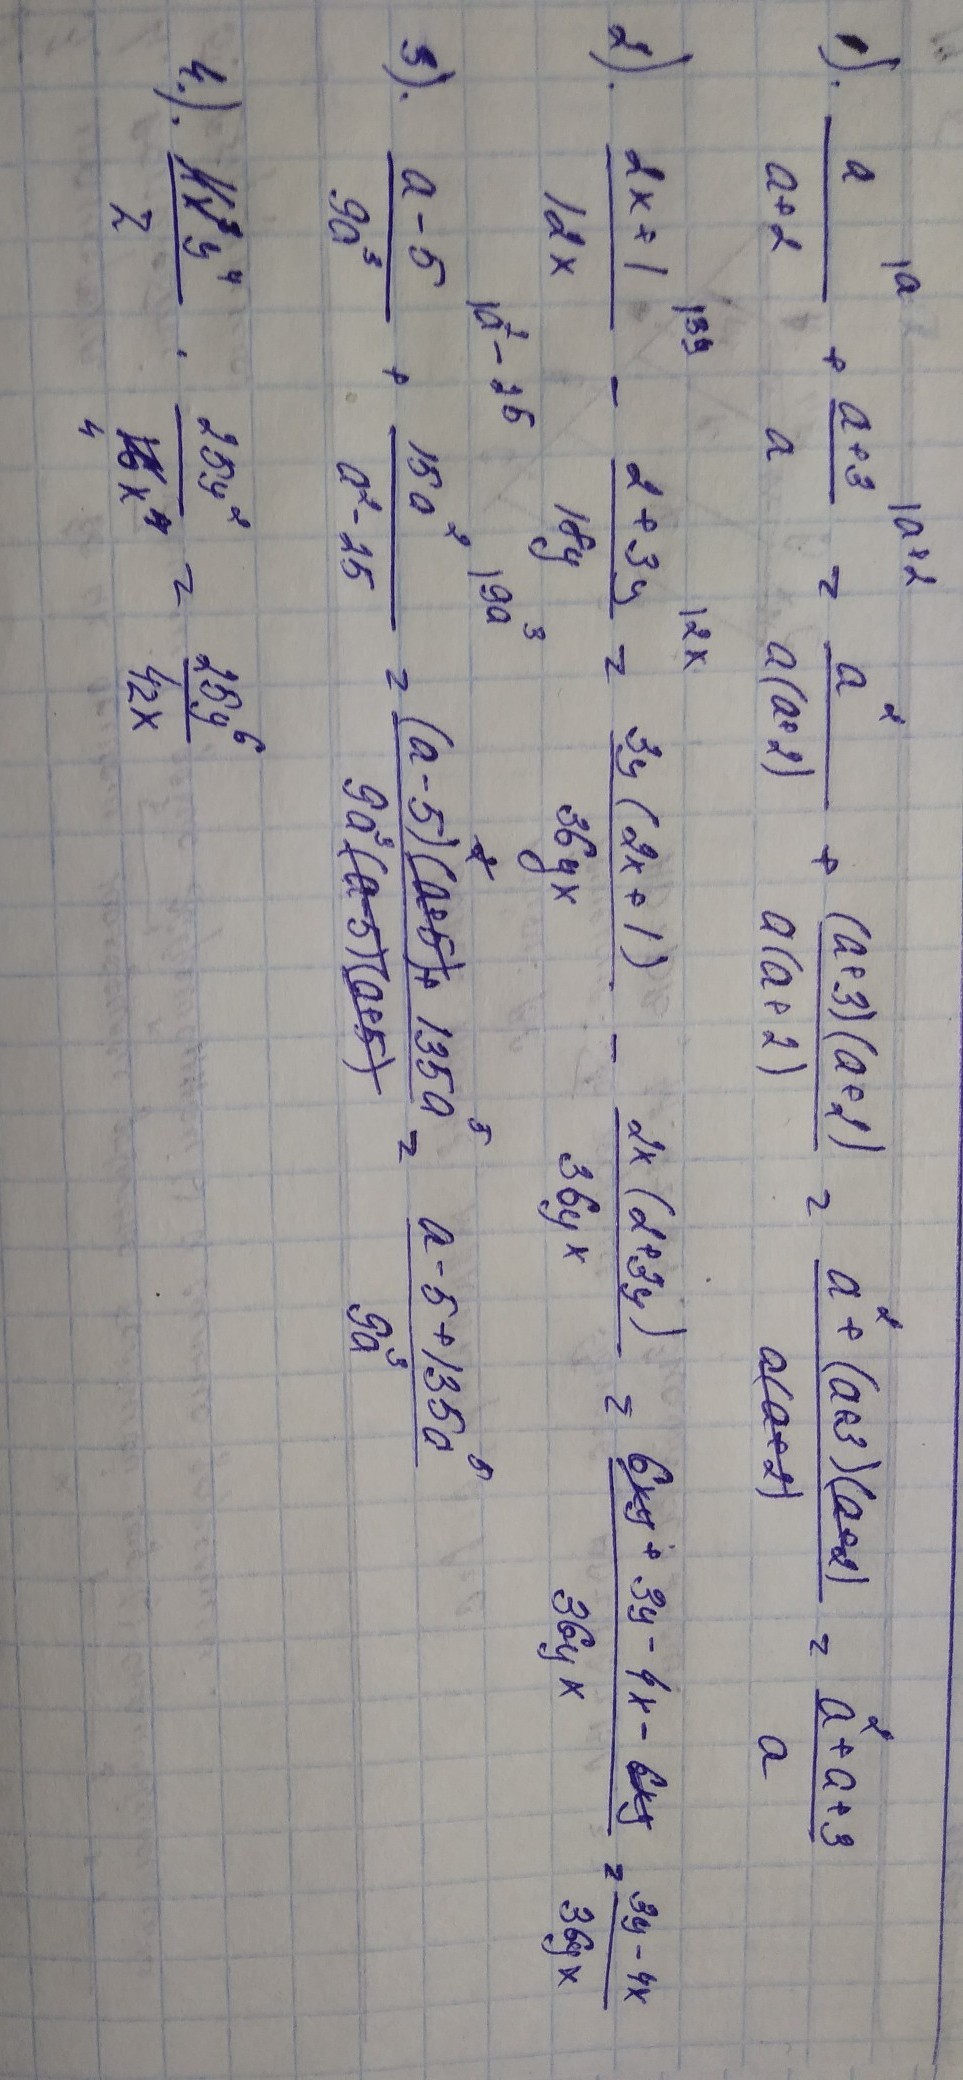 1). a/(a+2) |a + (a+3)/a |a+2 = a²/(a(a+2)) + (a+3)(a+2)/(a(a+2)) = (a²+(a+3)(a+2))/(a(a+2)) = (a²+a+3)/a
2). (2x+1)/12x |3y − (2+3y)/18y |2x = 3y(2x+1)/36yx − 2x(2+3y)/36yx = (6xy+3y−4x−6xy)/36yx = (3y−4x)/36yx
3). (a−5)/9a³ |a²−25 + 15a²/(a²−25) |9a³ = ((a−5)²(a+5)+135a⁵)/(9a³(a−5)(a+5)) = (a−5+135a⁵)/9a³
4.). x³y⁴/7 · 25y²/x⁴ 4 = 25y⁶/42x